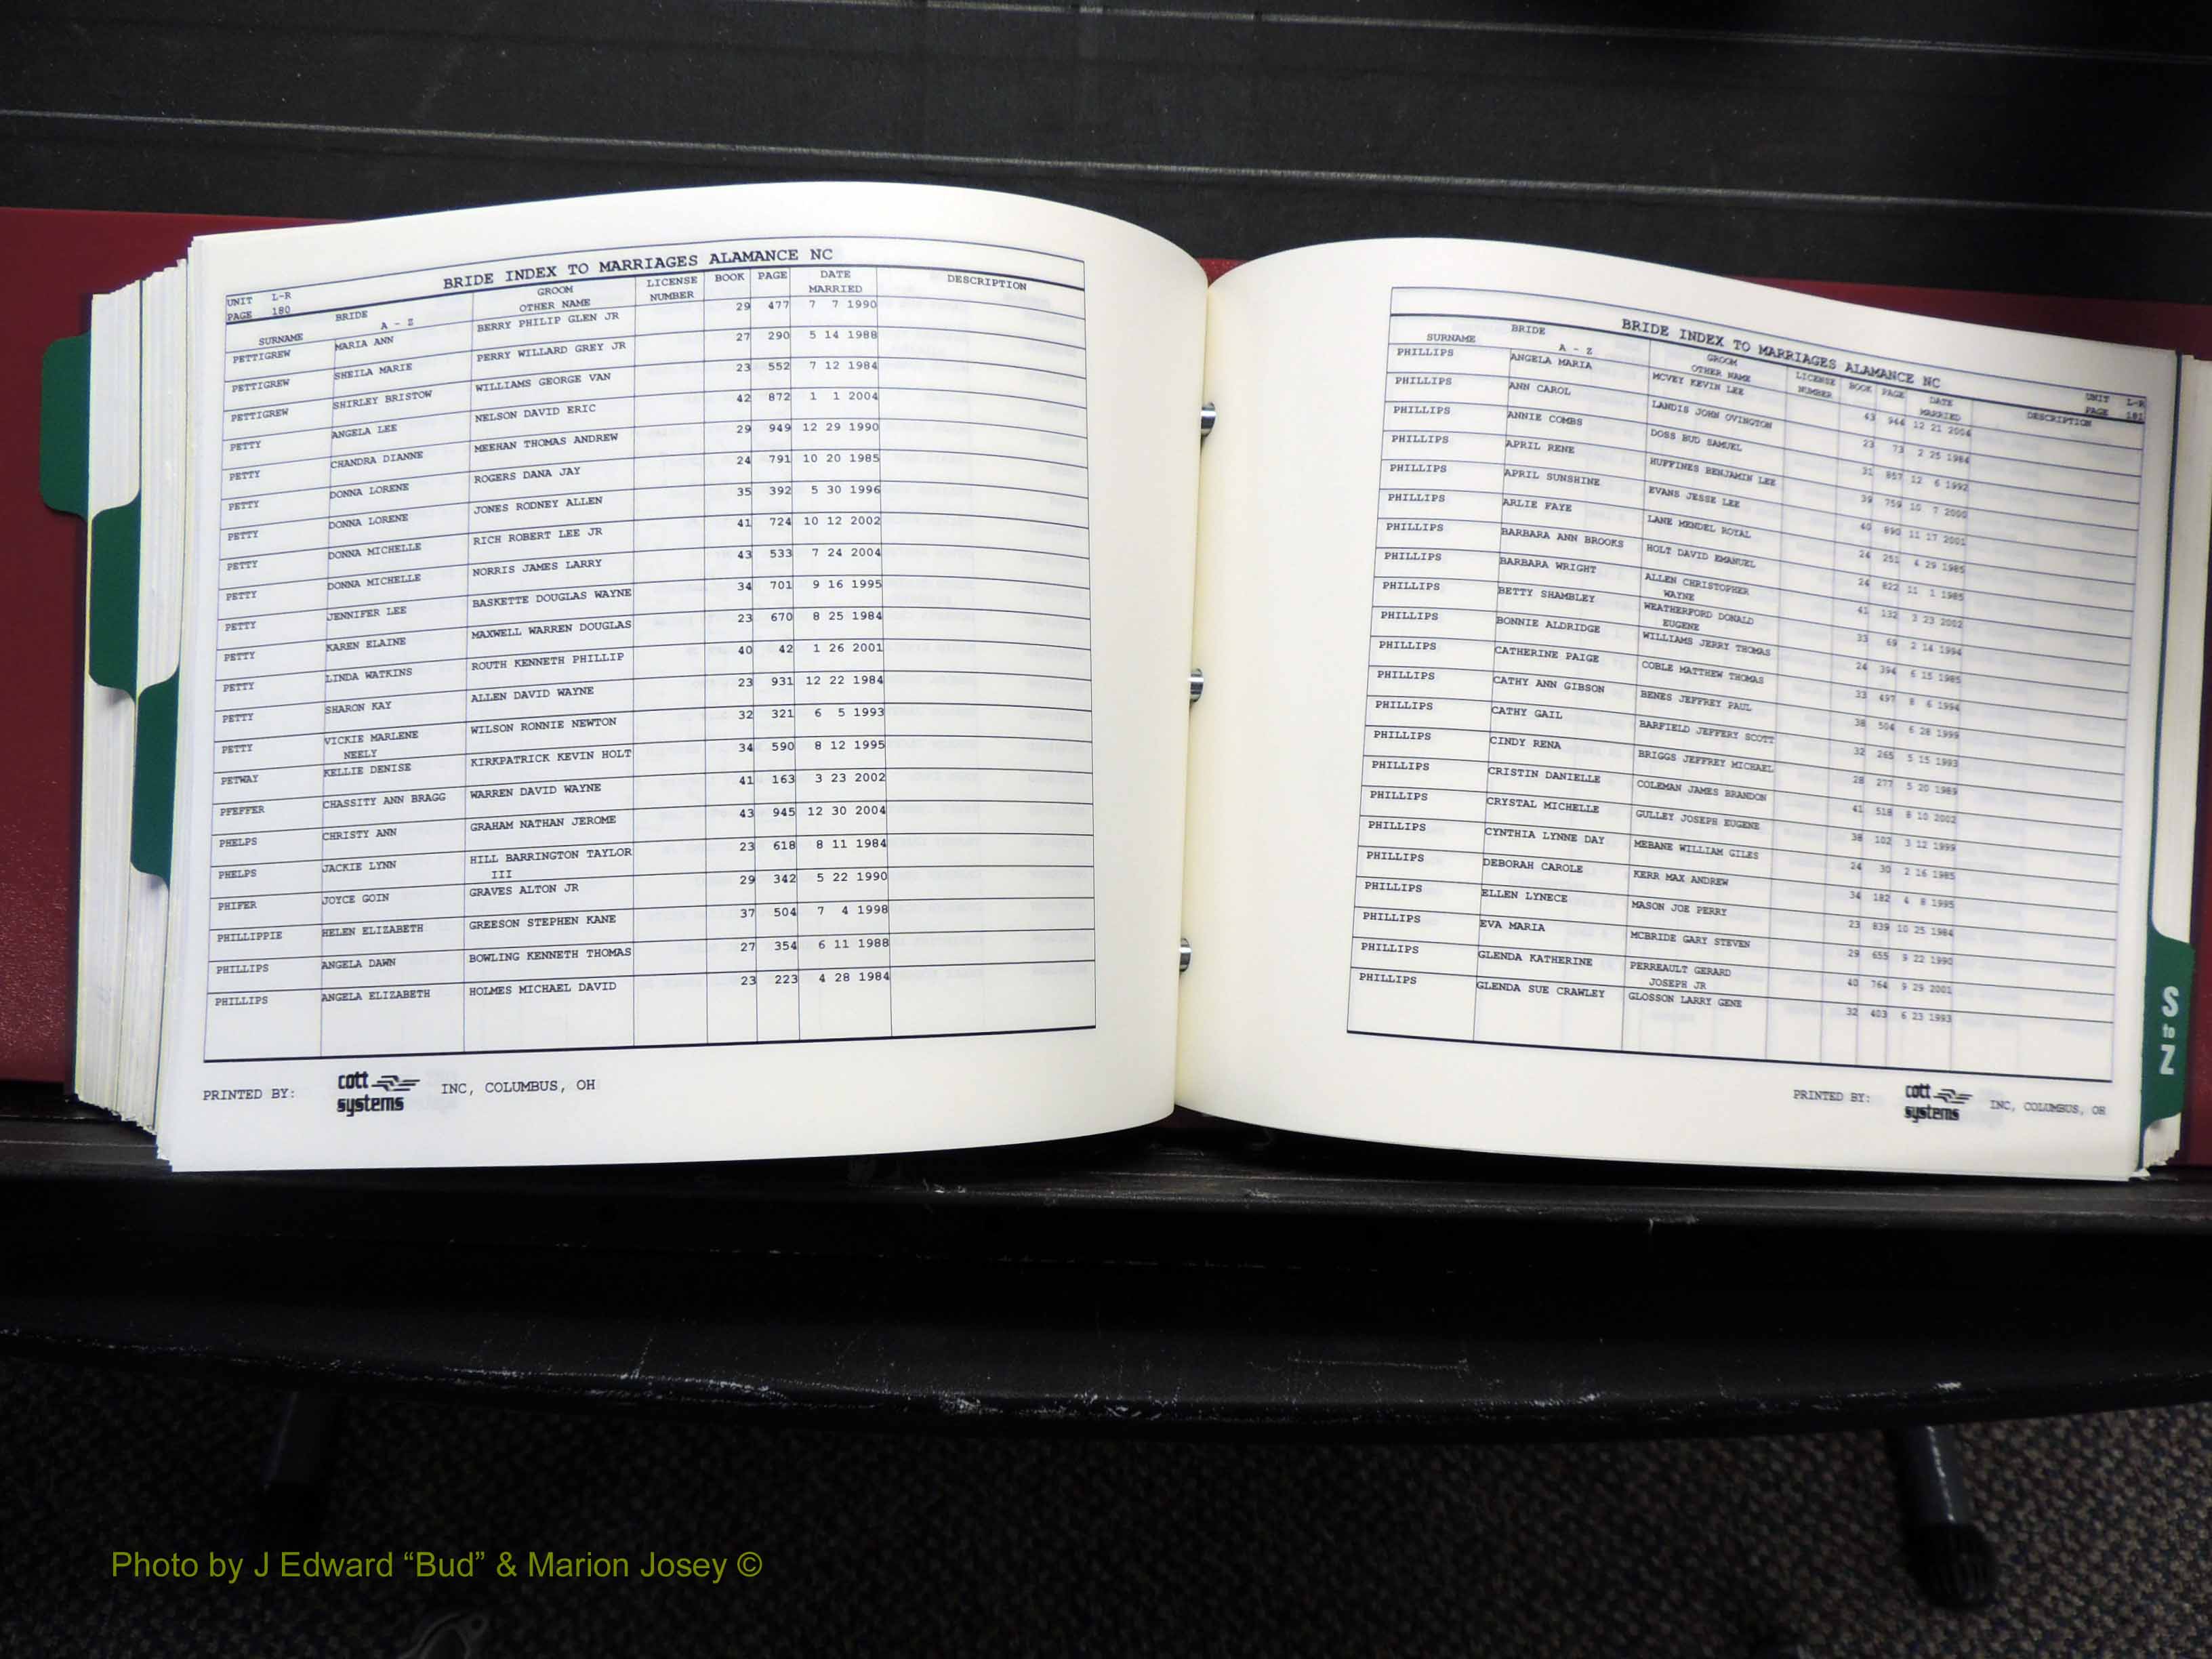 BRIDE INDEX TO MARRIAGES ALAMANCE NC
UNIT L-R
PAGE 180
BRIDE GROOM LICENSE BOOK PAGE DATE DESCRIPTION
SURNAME A - Z OTHER NAME NUMBER MARRIED
PETTIGREW MARIA ANN BERRY PHILIP GLEN JR 29 477 7 7 1990
PETTIGREW SHEILA MARIE PERRY WILLARD GREY JR 27 290 5 14 1988
PETTIGREW SHIRLEY BRISTOW WILLIAMS GEORGE VAN 23 552 7 12 1984
PETTY ANGELA LEE NELSON DAVID ERIC 42 872 1 1 2004
PETTY CHANDRA DIANNE MEEHAN THOMAS ANDREW 29 949 12 29 1990
PETTY DONNA LORENE ROGERS DANA JAY 24 791 10 20 1985
PETTY DONNA LORENE JONES RODNEY ALLEN 35 392 5 30 1996
PETTY DONNA MICHELLE RICH ROBERT LEE JR 41 724 10 12 2002
PETTY DONNA MICHELLE NORRIS JAMES LARRY 43 533 7 24 2004
PETTY JENNIFER LEE BASKETTE DOUGLAS WAYNE 34 701 9 16 1995
PETTY KAREN ELAINE MAXWELL WARREN DOUGLAS 23 670 8 25 1984
PETTY LINDA WATKINS ROUTH KENNETH PHILLIP 40 42 1 26 2001
PETTY SHARON KAY ALLEN DAVID WAYNE 23 931 12 22 1984
PETTY VICKIE MARLENE WILSON RONNIE NEWTON 32 321 6 5 1993
NEELY
PETWAY KELLIE DENISE KIRKPATRICK KEVIN HOLT 34 590 8 12 1995
PFEFFER CHASSITY ANN BRAGG WARREN DAVID WAYNE 41 163 3 23 2002
PHELPS CHRISTY ANN GRAHAM NATHAN JEROME 43 945 12 30 2004
PHELPS JACKIE LYNN HILL BARRINGTON TAYLOR 23 618 8 11 1984
III
PHIFER JOYCE GOIN GRAVES ALTON JR 29 342 5 22 1990
PHILLIPPIE HELEN ELIZABETH GREESON STEPHEN KANE 37 504 7 4 1998
PHILLIPS ANGELA DAWN BOWLING KENNETH THOMAS 27 354 6 11 1988
PHILLIPS ANGELA ELIZABETH HOLMES MICHAEL DAVID 23 223 4 28 1984
PRINTED BY: cott systems INC, COLUMBUS, OH
BRIDE INDEX TO MARRIAGES ALAMANCE NC
UNIT L-R
PAGE 181
BRIDE GROOM LICENSE BOOK PAGE DATE DESCRIPTION
SURNAME A - Z OTHER NAME NUMBER MARRIED
PHILLIPS ANGELA MARIA MCVEY KEVIN LEE 43 944 12 21 2004
PHILLIPS ANN CAROL LANDIS JOHN OVINGTON 23 73 2 25 1984
PHILLIPS ANNIE COMBS DOSS BUD SAMUEL 31 857 12 6 1992
PHILLIPS APRIL RENE HUFFINES BENJAMIN LEE 39 759 10 7 2000
PHILLIPS APRIL SUNSHINE EVANS JESSE LEE 40 890 11 17 2001
PHILLIPS ARLIE FAYE LANE MENDEL ROYAL 24 251 4 29 1985
PHILLIPS BARBARA ANN BROOKS HOLT DAVID EMANUEL 24 822 11 1 1985
PHILLIPS BARBARA WRIGHT ALLEN CHRISTOPHER 41 132 3 23 2002
WAYNE
PHILLIPS BETTY SHAMBLEY WEATHERFORD DONALD 33 69 2 14 1994
EUGENE
PHILLIPS BONNIE ALDRIDGE WILLIAMS JERRY THOMAS 24 394 6 15 1985
PHILLIPS CATHERINE PAIGE COBLE MATTHEW THOMAS 33 497 8 6 1994
PHILLIPS CATHY ANN GIBSON BENES JEFFREY PAUL 38 504 6 28 1999
PHILLIPS CATHY GAIL BARFIELD JEFFERY SCOTT 32 265 5 15 1993
PHILLIPS CINDY RENA BRIGGS JEFFREY MICHAEL 28 277 5 20 1989
PHILLIPS CRISTIN DANIELLE COLEMAN JAMES BRANDON 41 518 8 10 2002
PHILLIPS CRYSTAL MICHELLE GULLEY JOSEPH EUGENE 38 102 3 12 1999
PHILLIPS CYNTHIA LYNNE DAY MEBANE WILLIAM GILES 24 30 2 16 1985
PHILLIPS DEBORAH CAROLE KERR MAX ANDREW 34 182 4 8 1995
PHILLIPS ELLEN LYNECE MASON JOE PERRY 23 839 10 25 1984
PHILLIPS EVA MARIA MCBRIDE GARY STEVEN 29 655 9 22 1990
PHILLIPS GLENDA KATHERINE PERREAULT GERARD 40 764 9 29 2001
JOSEPH JR
PHILLIPS GLENDA SUE CRAWLEY GLOSSON LARRY GENE 32 403 6 23 1993
PRINTED BY: cott systems INC, COLUMBUS, OH
S
to
Z
Photo by J Edward “Bud” & Marion Josey ©